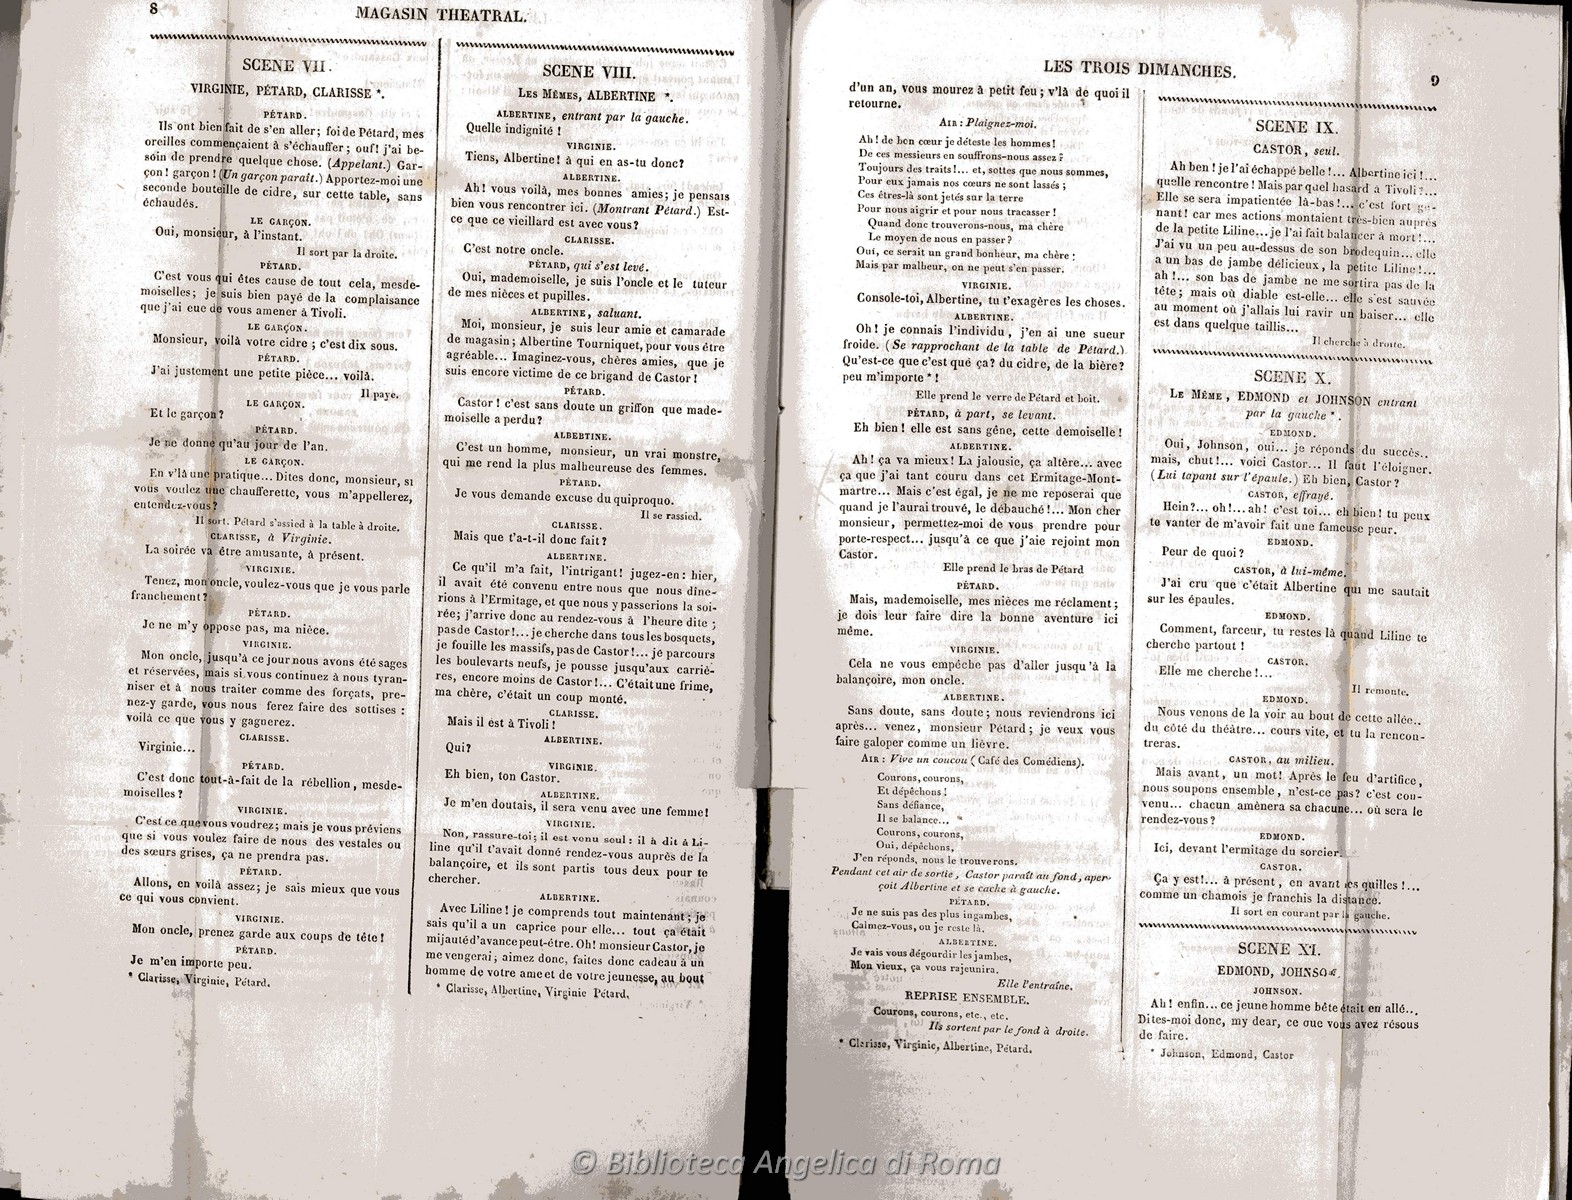 8
MAGASIN THEATRAL.
SCENE VII.
VIRGINIE, PÉTARD, CLARISSE *.
PÉTARD.
Ils ont bien fait de s'en aller; foi de Pétard, mes
oreilles commençaient à s'échauffer; ouf! j'ai be-
soin de prendre quelque chose. (Appelant.) Gar-
çon! garçon! (Un garçon paraît.) Apportez-moi une
seconde bouteille de cidre, sur cette table, sans
échaudés.
LE GARÇON.
Oui, monsieur, à l'instant.
Il sort par la droite.
PÉTARD.
C'est vous qui êtes cause de tout cela, mesde-
moiselles; je suis bien payé de la complaisance
que j'ai eue de vous amener à Tivoli.
LE GARÇON.
Monsieur, voilà votre cidre; c'est dix sous.
PÉTARD.
J'ai justement une petite pièce... voilà.
Il paye.
LE GARÇON.
Et le garçon?
PÉTARD.
Je ne donne qu'au jour de l'an.
LE GARÇON.
En v'là une pratique... Dites donc, monsieur, si
vous voulez une chaufferette, vous m'appellerez,
entendez-vous?
Il sort. Pétard s'assied à la table à droite.
CLARISSE, à Virginie.
La soirée va être amusante, à présent.
VIRGINIE.
Tenez, mon oncle, voulez-vous que je vous parle
franchement?
PÉTARD.
Je ne m'y oppose pas, ma nièce.
VIRGINIE.
Mon oncle, jusqu'à ce jour nous avons été sages
et réservées, mais si vous continuez à nous tyran-
niser et à nous traiter comme des forçats, pre-
nez-y garde, vous nous ferez faire des sottises:
voilà ce que vous y gagnerez.
CLARISSE.
Virginie...
PÉTARD.
C'est donc tout-à-fait de la rébellion, mesde-
moiselles?
VIRGINIE.
C'est ce que vous voudrez; mais je vous préviens
que si vous voulez faire de nous des vestales ou
des sœurs grises, ça ne prendra pas.
PÉTARD.
Allons, en voilà assez; je sais mieux que vous
ce qui vous convient.
VIRGINIE.
Mon oncle, prenez garde aux coups de tête!
PÉTARD.
Je m'en importe peu.
* Clarisse, Virginie, Pétard.
SCENE VIII.
LES MÊMES, ALBERTINE *.
ALBERTINE, entrant par la gauche.
Quelle indignité!
VIRGINIE.
Tiens, Albertine! à qui en as-tu donc?
ALBERTINE.
Ah! vous voilà, mes bonnes amies; je pensais
bien vous rencontrer ici. (Montrant Pétard.) Est-
ce que ce vieillard est avec vous?
CLARISSE.
C'est notre oncle.
PÉTARD, qui s'est levé.
Oui, mademoiselle, je suis l'oncle et le tuteur
de mes nièces et pupilles.
ALBERTINE, saluant.
Moi, monsieur, je suis leur amie et camarade
de magasin; Albertine Tourniquet, pour vous être
agréable... Imaginez-vous, chères amies, que je
suis encore victime de ce brigand de Castor!
PÉTARD.
Castor! c'est sans doute un griffon que made-
moiselle a perdu?
ALBERTINE.
C'est un homme, monsieur, un vrai monstre,
qui me rend la plus malheureuse des femmes.
PÉTARD.
Je vous demande excuse du quiproquo.
Il se rassied.
CLARISSE.
Mais que t'a-t-il donc fait?
ALBERTINE.
Ce qu'il m'a fait, l'intrigant! jugez-en: hier,
il avait été convenu entre nous que nous dîne-
rions à l'Ermitage, et que nous y passerions la soi-
rée; j'arrive donc au rendez-vous à l'heure dite;
pas de Castor!... je cherche dans tous les bosquets,
je fouille les massifs, pas de Castor!... je parcours
les boulevarts neufs, je pousse jusqu'aux carriè-
res, encore moins de Castor!... C'était une frime,
ma chère, c'était un coup monté.
CLARISSE.
Mais il est à Tivoli!
ALBERTINE.
Qui?
VIRGINIE.
Eh bien, ton Castor.
ALBERTINE.
Je m'en doutais, il sera venu avec une femme!
VIRGINIE.
Non, rassure-toi; il est venu seul: il a dit à Li-
line qu'il t'avait donné rendez-vous auprès de la
balançoire, et ils sont partis tous deux pour te
chercher.
ALBERTINE.
Avec Liline! je comprends tout maintenant; je
sais qu'il a un caprice pour elle... tout ça était
mijauté d'avance peut-être. Oh! monsieur Castor, je
me vengerai; aimez donc, faites donc cadeau à un
homme de votre ame et de votre jeunesse, au bout
* Clarisse, Albertine, Virginie Pétard.
LES TROIS DIMANCHES.
9
d'un an, vous mourez à petit feu; v'là de quoi il
retourne.
AIR: Plaignez-moi.
Ah! de bon cœur je déteste les hommes!
De ces messieurs en souffrons-nous assez?
Toujours des traits!... et, sottes que nous sommes,
Pour eux jamais nos cœurs ne sont lassés;
Ces êtres-là sont jetés sur la terre
Pour nous aigrir et pour nous tracasser!
Quand donc trouverons-nous, ma chère
Le moyen de nous en passer?
Oui, ce serait un grand bonheur, ma chère;
Mais par malheur, on ne peut s'en passer.
VIRGINIE.
Console-toi, Albertine, tu t'exagères les choses.
ALBERTINE.
Oh! je connais l'individu, j'en ai une sueur
froide. (Se rapprochant de la table de Pétard.)
Qu'est-ce que c'est qué ça? du cidre, de la bière?
peu m'importe *!
Elle prend le verre de Pétard et boit.
PÉTARD, à part, se levant.
Eh bien! elle est sans gêne, cette demoiselle!
ALBERTINE.
Ah! ça va mieux! La jalousie, ça altère... avec
ça que j'ai tant couru dans cet Ermitage-Mont-
martre... Mais c'est égal, je ne me reposerai que
quand je l'aurai trouvé, le débauché!... Mon cher
monsieur, permettez-moi de vous prendre pour
porte-respect... jusqu'à ce que j'aie rejoint mon
Castor.
Elle prend le bras de Pétard
PÉTARD.
Mais, mademoiselle, mes nièces me réclament;
je dois leur faire dire la bonne aventure ici
même.
VIRGINIE.
Cela ne vous empêche pas d'aller jusqu'à la
balançoire, mon oncle.
ALBERTINE.
Sans doute, sans doute; nous reviendrons ici
après... venez, monsieur Pétard; je veux vous
faire galoper comme un lièvre.
AIR: Vive un coucou (Café des Comédiens).
Courons, courons,
Et dépêchons!
Sans défiance,
Il se balance...
Courons, courons,
Oui, dépêchons,
J'en réponds, nous le trouverons.
Pendant cet air de sortie, Castor paraît au fond, aper-
çoit Albertine et se cache à gauche.
PÉTARD.
Je ne suis pas des plus ingambes,
Calmez-vous, ou je reste là.
ALBERTINE.
Je vais vous dégourdir les jambes,
Mon vieux, ça vous rajeunira.
Elle l'entraîne.
REPRISE ENSEMBLE.
Courons, courons, etc., etc.
Ils sortent par le fond à droite.
* Clarisse, Virginie, Albertine, Pétard.
SCENE IX.
CASTOR, seul.
Ah ben! je l'ai échappé belle!... Albertine ici!...
quelle rencontre! Mais par quel hasard à Tivoli?...
Elle se sera impatientée là-bas!... c'est fort gê-
nant! car mes actions montaient très-bien auprès
de la petite Liline... je l'ai fait balancer à mort!...
J'ai vu un peu au-dessus de son brodequin... elle
a un bas de jambe délicieux, la petite Liline!...
ah!... son bas de jambe ne me sortira pas de la
tête; mais où diable est-elle... elle s'est sauvée
au moment où j'allais lui ravir un baiser... elle
est dans quelque taillis...
Il cherche à droite.
SCENE X.
LE MÊME, EDMOND et JOHNSON entrant
par la gauche *.
EDMOND.
Oui, Johnson, oui... je réponds du succès..
mais, chut!... voici Castor... Il faut l'éloigner.
(Lui tapant sur l'épaule.) Eh bien, Castor?
CASTOR, effrayé.
Hein?... oh!... ah! c'est toi... eh bien! tu peux
te vanter de m'avoir fait une fameuse peur.
EDMOND.
Peur de quoi?
CASTOR, à lui-même.
J'ai cru que c'était Albertine qui me sautait
sur les épaules.
EDMOND.
Comment, farceur, tu restes là quand Liline te
cherche partout!
CASTOR.
Elle me cherche!...
Il remonte.
EDMOND.
Nous venons de la voir au bout de cette allée..
du côté du théâtre... cours vite, et tu la rencon-
treras.
CASTOR, au milieu.
Mais avant, un mot! Après le feu d'artifice,
nous soupons ensemble, n'est-ce pas? c'est con-
venu... chacun amènera sa chacune... où sera le
rendez-vous?
EDMOND.
Ici, devant l'ermitage du sorcier.
CASTOR.
Ça y est!... à présent, en avant les quilles!...
comme un chamois je franchis la distance.
Il sort en courant par la gauche.
SCENE XI.
EDMOND, JOHNSON.
JOHNSON.
Ah! enfin... ce jeune homme bête était en allé...
Dites-moi donc, my dear, ce que vous avez résous
de faire.
* Johnson, Edmond, Castor
© Biblioteca Angelica di Roma